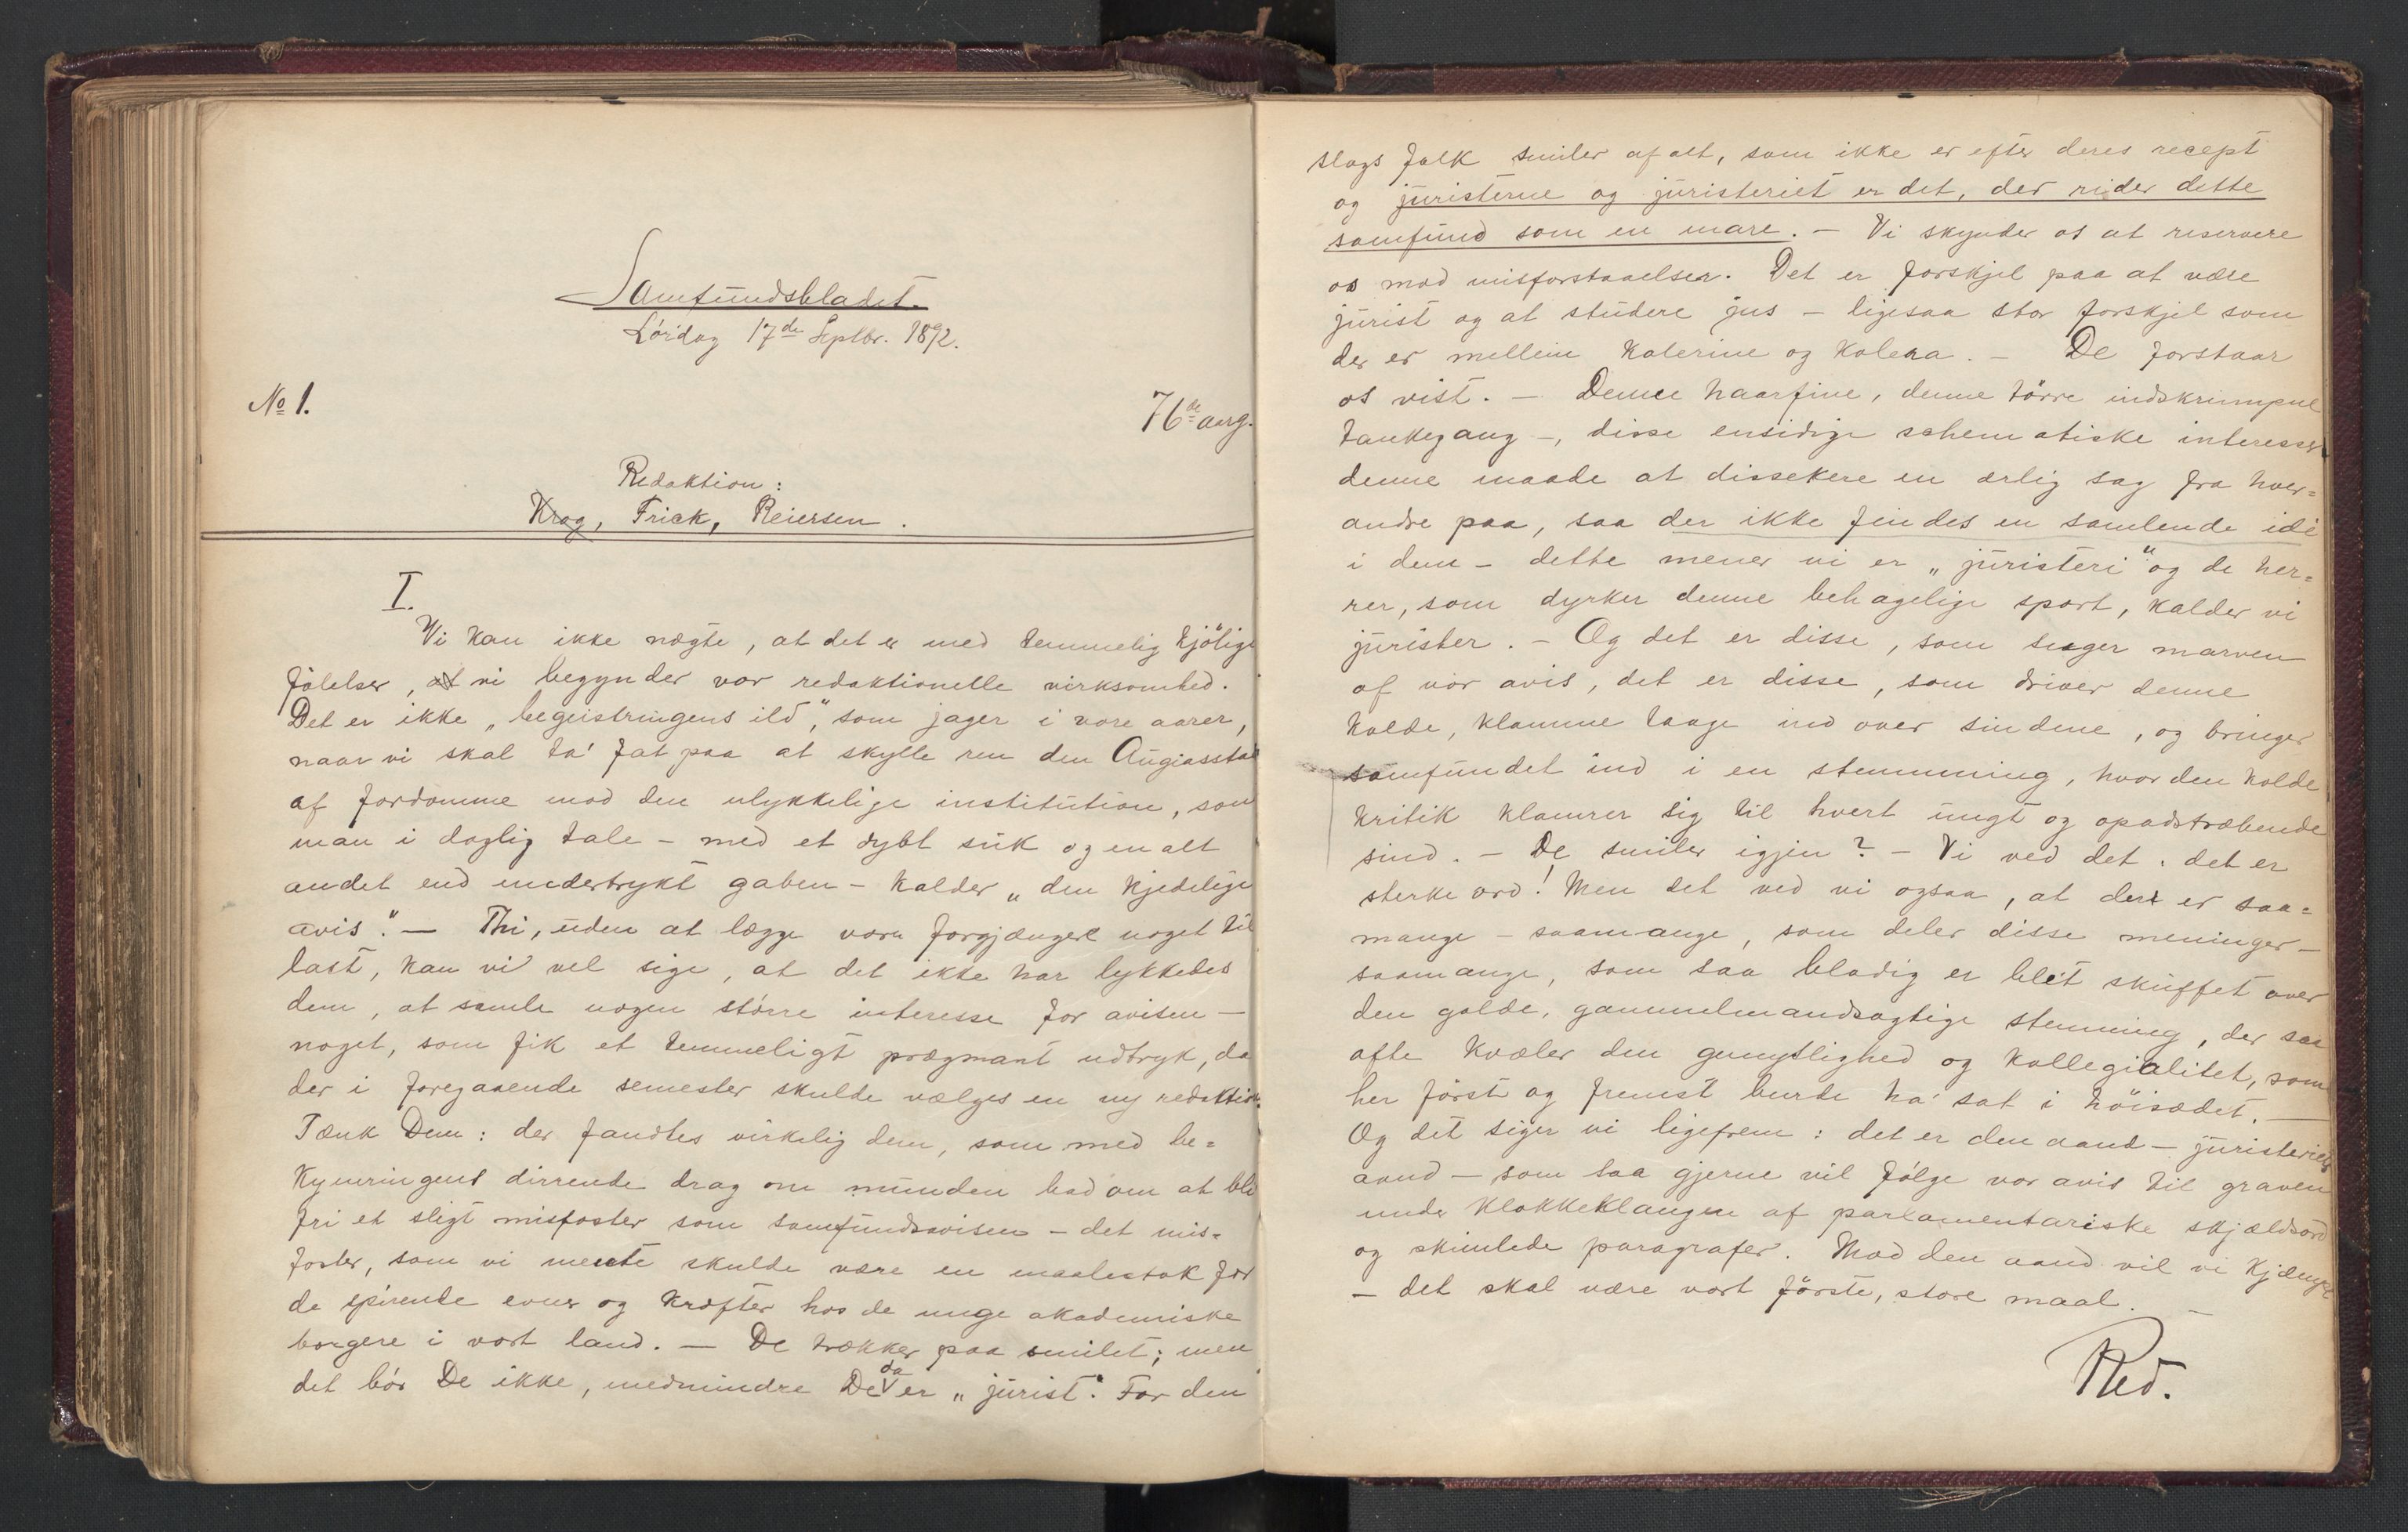 Samfundsbladet.
Lördag 17de Septbr. 1892.
No 1.
76de aarg.
Redaktion:
Krag, Frick, Reiersen.
I.
Vi kan ikke nægte, at det er med temmelig kjölige
fölelser, at vi begynder vor redaktionelle virksomhed.
Det er ikke „begeistringens ild", som jager i vore aarer,
naar vi skal ta' fat paa at skylle ren den Augiasstal
af fordomme mod den ulykkelige institution, som
man i daglig tale – med et dybt suk og en alt
andet end undertrykt gaben – kalder „den kjedelige
avis". — Thi, uden at lægge vore forgjængere noget til
last, kan vi vel sige, at det ikke har lykkedes
dem, at samle nogen större interesse for avisen —
noget, som fik et temmeligt prægnant udtryk, da
der i foregaaende semester skulde vælges en ny redaktion.
Tænk Dem: der fandtes virkelig dem, som med be=
kymringens dirrende drag om munden bad om at bli
fri et sligt misfoster som samfundsavisen – det mis-
foster, som vi mente skulde være en maalestok for
de spirende evner og kræfter hos de unge akademiske
borgere i vort land. — De trækker paa smilet; men
det bör De ikke, medmindre De da er „jurist". For den
slags folk smiler af alt, som ikke er efter deres recept
og juristerne og juristeriet er det, der rider dette
samfund som en mare. – Vi skynder os at reservere
os mod misforstaaelser. Det er forskjel paa at være
jurist og at studere jus – ligesaa stor forskjel som
der er mellem Katerine og Kolera. – De forstaar
os vist. – Denne haarfine, denne törre indskrumpne
tankegang –, disse ensidige schematiske interesser
denne maade at dissekere en ærlig sag fra hver=
andre paa, saa der ikke findes en samlende idé
i dem – dette mener vi er „juristeri" og de her=
rer, som dyrker denne behagelige sport, kalder vi
jurister. – Og det er disse, som suger marven
af vor avis, det er disse, som driver denne
kolde, klamme taage ind over sindene, og bringer
samfundet ind i en stemmning, hvor den kolde
kritik klamrer sig til hvert ungt og opadstræbende
sind. – De smiler igjen? – Vi ved det. det er
sterke ord! Men det ved vi ogsaa, at der er saa=
mange – saamange, som deler disse meninger –
saamange, som saa blodig er blet skuffet over
den golde, gammelmandsagtige stemning, der saa
ofte kvæler den gemytlighed og kollegialitet, som
her först og fremst burde ha' sat i höisædet. —
Og det siger vi ligefrem: det er den aand – juristeriets
aand – som saa gjerne vil fölge vor avis til graven
under klokkeklangen af parlamentariske skjældsord
og skimlede paragrafer. Mod den aand vil vi kjæmpe
– det skal være vort förste, store maal. –
Red.